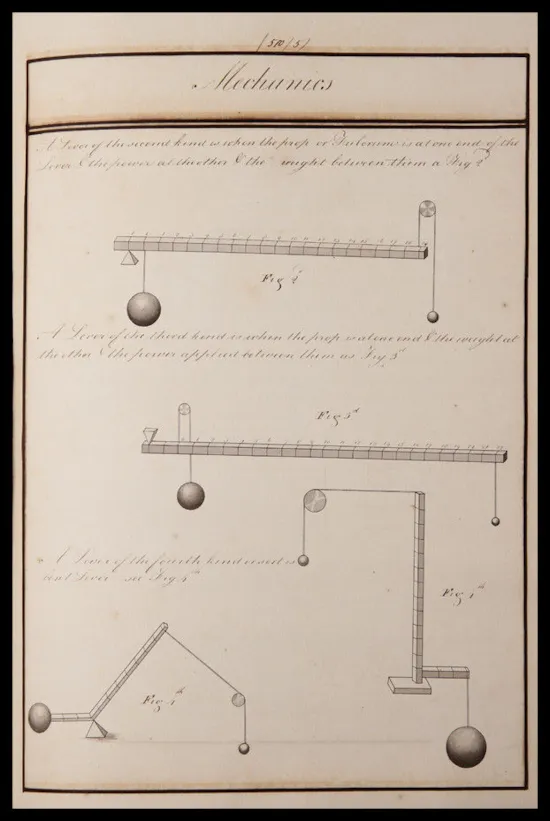 (510/5)
Mechanics
A Lever of the second kind is when the prop or Fulcrum is at one end of the
Lever & the power at the other & the weight between them a Fig 2d
Fig 2d
A Lever of the third kind is when the prop is at one end & the weight at
the other & the power applied between them as Fig 3d
Fig 3d
A Lever of the fourth kind is
bent Lever see Fig 4th
Fig 4th
Fig 4th